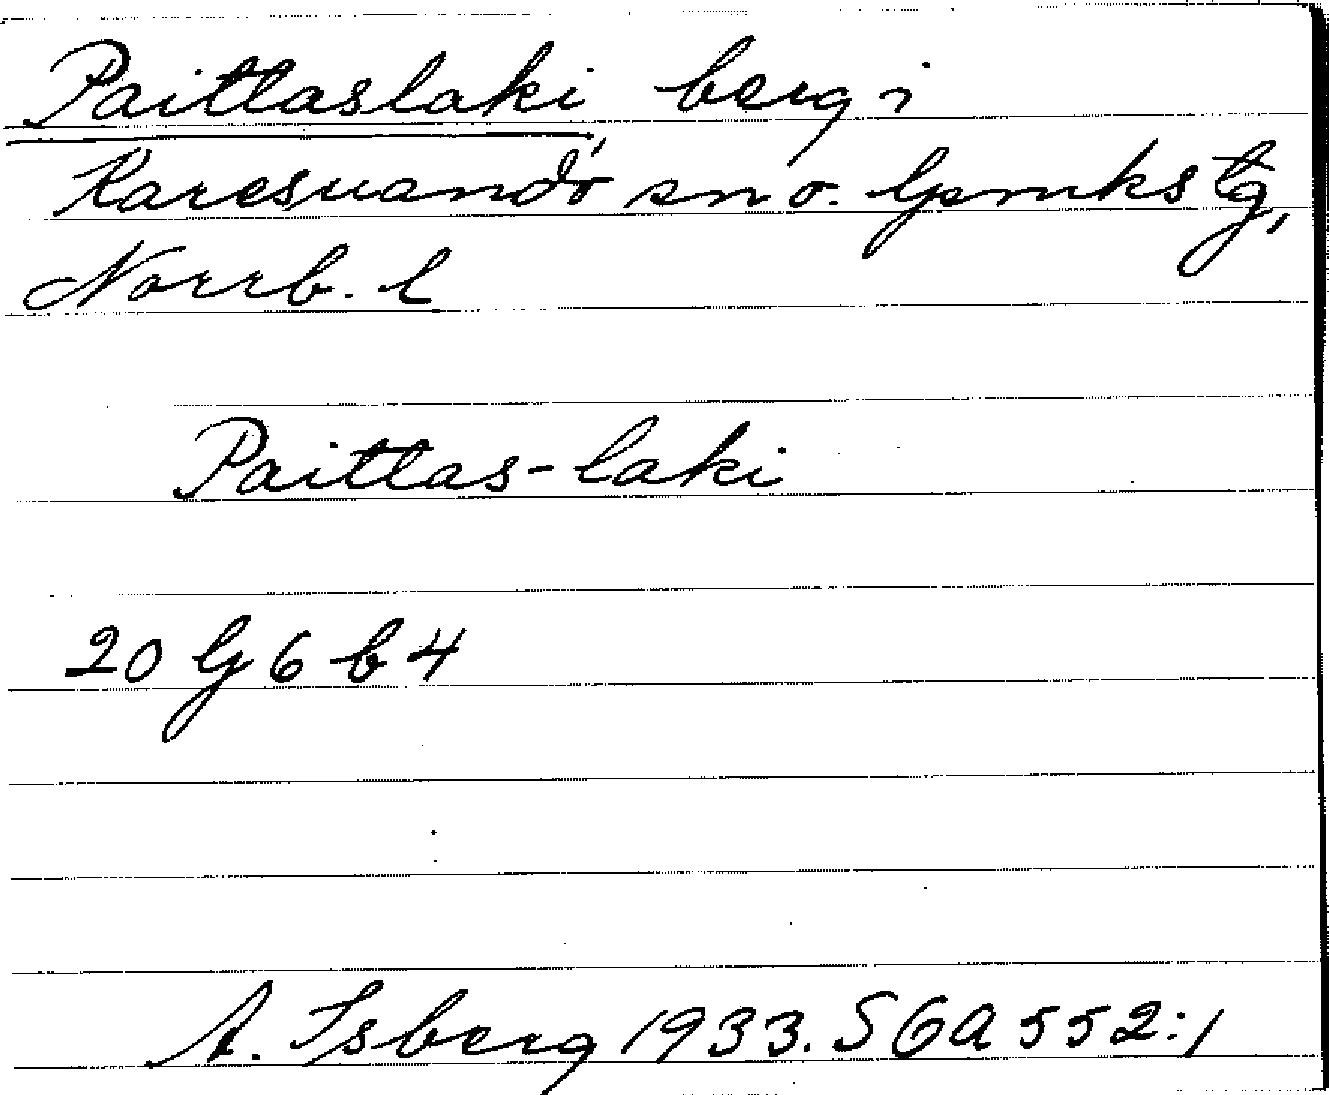 Paittaslaki, berg i
Karesuando sn o. lpmks tg,
Norrb. l
Paittas-laki
20 G 6 b 4
A. Isberg 1933. SGA 552:1